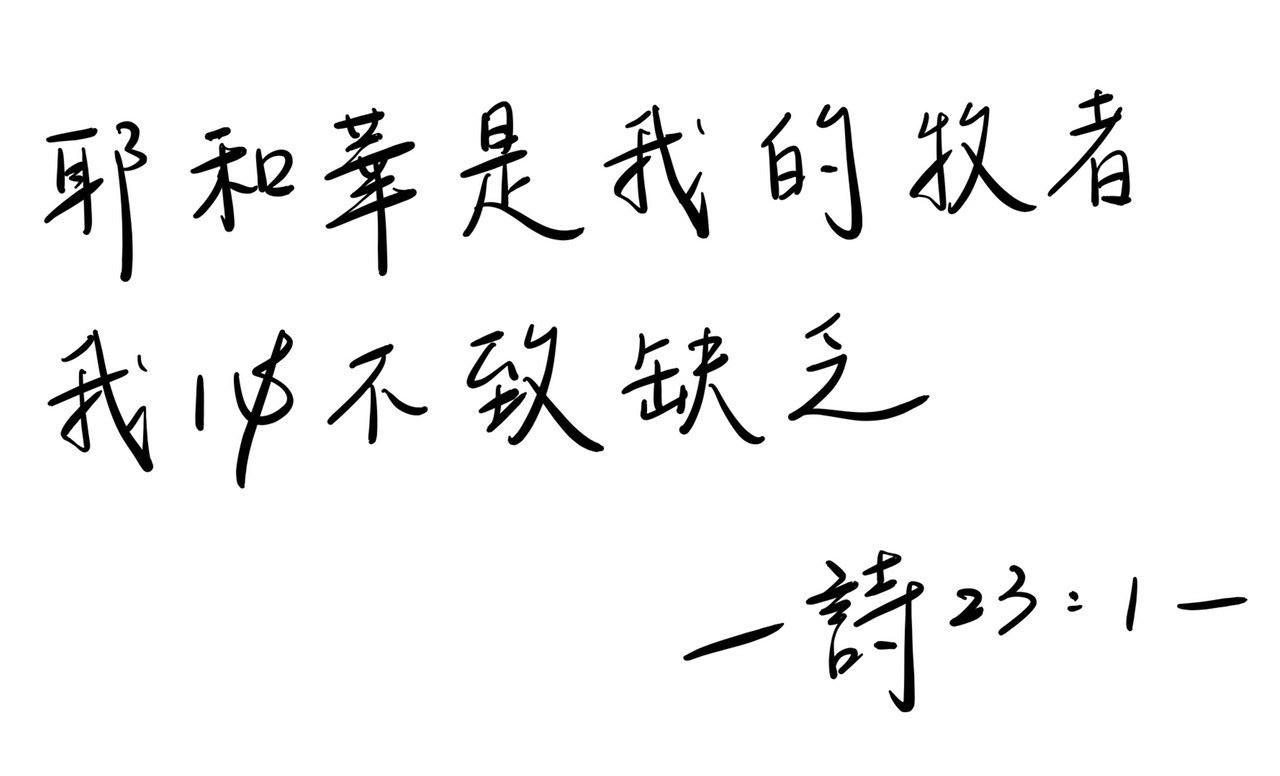 耶和華是我的牧者
我必不致缺乏
—詩23:1—